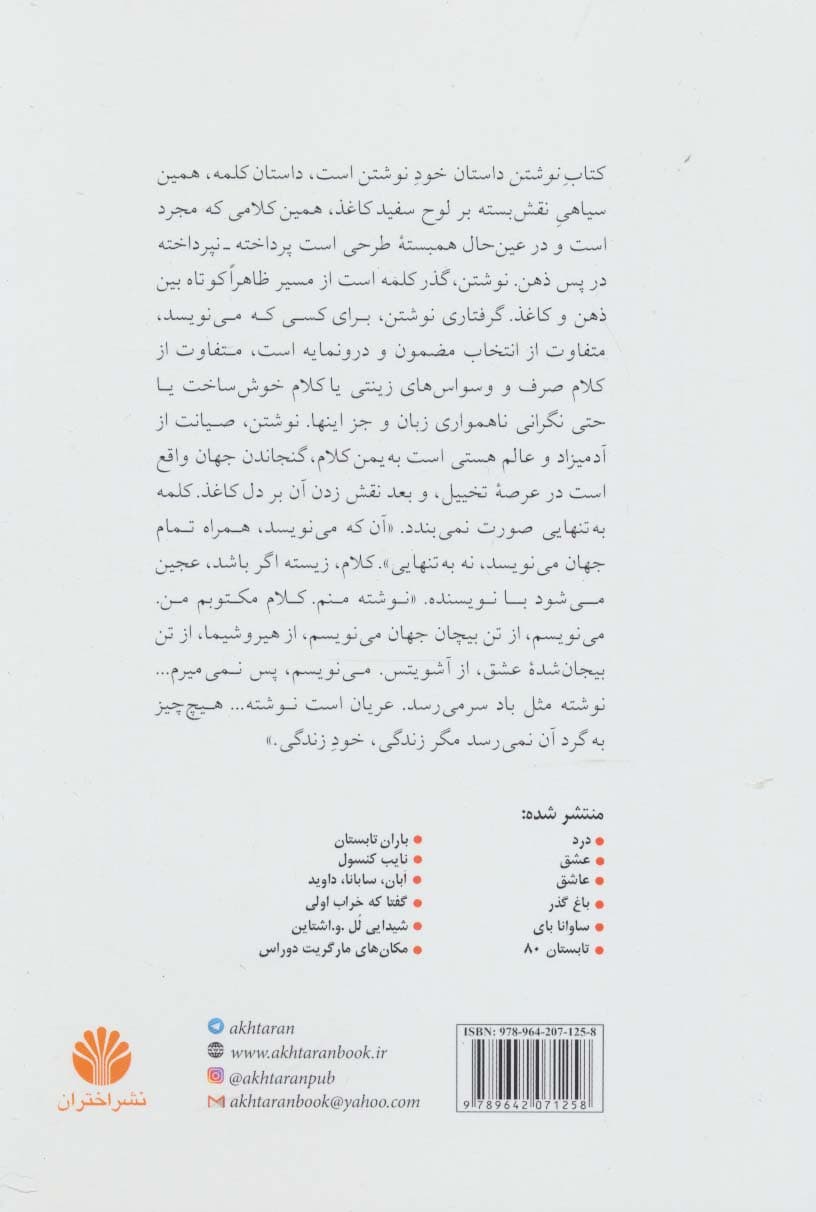 کتابِ نوشتن داستان خودِ نوشتن است، داستان کلمه، همین
سیاهیِ نقش‌بسته بر لوح سفید کاغذ، همین کلامی که مجرد
است و در عین‌حال همبستهٔ طرحی است پرداخته ـ نپرداخته
در پس ذهن. نوشتن، گذر کلمه است از مسیر ظاهراً کوتاه بین
ذهن و کاغذ. گرفتاری نوشتن، برای کسی که می‌نویسد،
متفاوت از انتخاب مضمون و درونمایه است، متفاوت از
کلام صرف و وسواس‌های زینتی یا کلام خوش‌ساخت یا
حتی نگرانی ناهمواری زبان و جز اینها. نوشتن، صیانت از
آدمیزاد و عالم هستی است به‌یمن کلام، گنجاندن جهان واقع
است در عرصهٔ تخییل، و بعد نقش زدن آن بر دل کاغذ. کلمه
به‌تنهایی صورت نمی‌بندد. «آن که می‌نویسد، همراه تمام
جهان می‌نویسد، نه به‌تنهایی». کلام، زیسته اگر باشد، عجین
می‌شود با نویسنده. «نوشته منم. کلام مکتوبم من.
می‌نویسم، از تن بیچان جهان می‌نویسم، از هیروشیما، از تن
بیجان‌شدهٔ عشق، از آشویتس. می‌نویسم، پس نمی‌میرم...
نوشته مثل باد سرمی‌رسد. عریان است نوشته... هیچ‌چیز
به گرد آن نمی‌رسد مگر زندگی، خودِ زندگی.»
منتشر شده:
● درد
● عشق
● عاشق
● باغ گذر
● ساوانا بای
● تابستان ۸۰
● باران تابستان
● نایب کنسول
● اَبان، سابانا، داوید
● گفتا که خراب اولی
● شیدایی لُل .و.اشتاین
● مکان‌های مارگریت دوراس
akhtaran
www.akhtaranbook.ir
@akhtaranpub
akhtaranbook@yahoo.com
نشر اختران
ISBN: 978-964-207-125-8
9 789642 071258